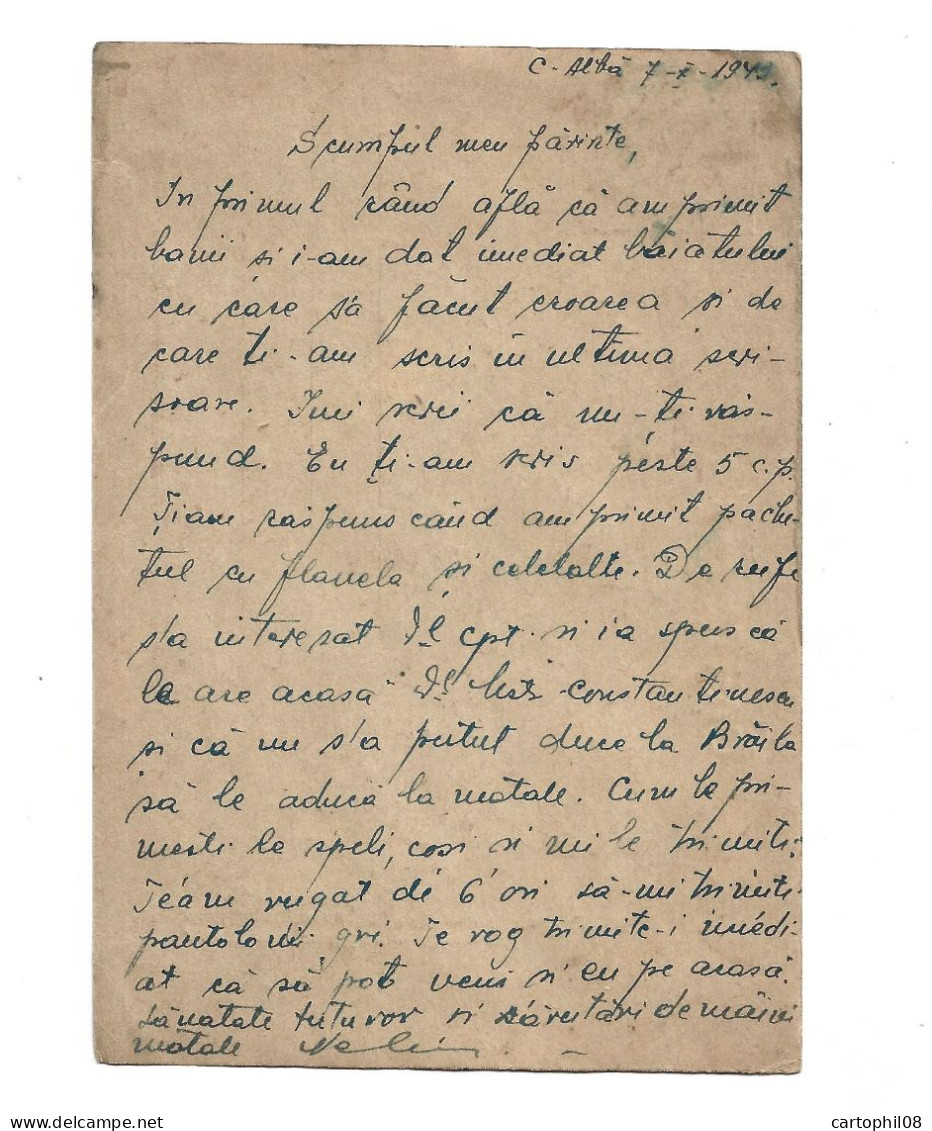 C. Albă 7-X-194
Scumpul meu părinte,
In primul rând află că am primit
banii și i-am dat imediat băiatului
cu care s'a făcut eroarea și de
care ți-am scris în ultima scri-
soare. Imi scrii că nu-ți răs-
pund. Eu ți-am scris peste 5 c.p.
Țiam raspuns când am primit pache-
tul cu flanela și celelalte. De rufe
s'a interesat Dl cpt. si ia spus că
le are acasă Dl Constantinescu
si că nu s'a putut duce la Brăila
să le aducă la matale. Cum le pri-
mesti le speli, cosi si mi le trimiti.
Te'am rugat de 6 ori să-mi trimiti
pantolonii gri. Te rog trimite-i imedi-
at că să pot veni si eu pe acasă.
Sănatate tuturor si sărutări de mâini
matale
cartophil08